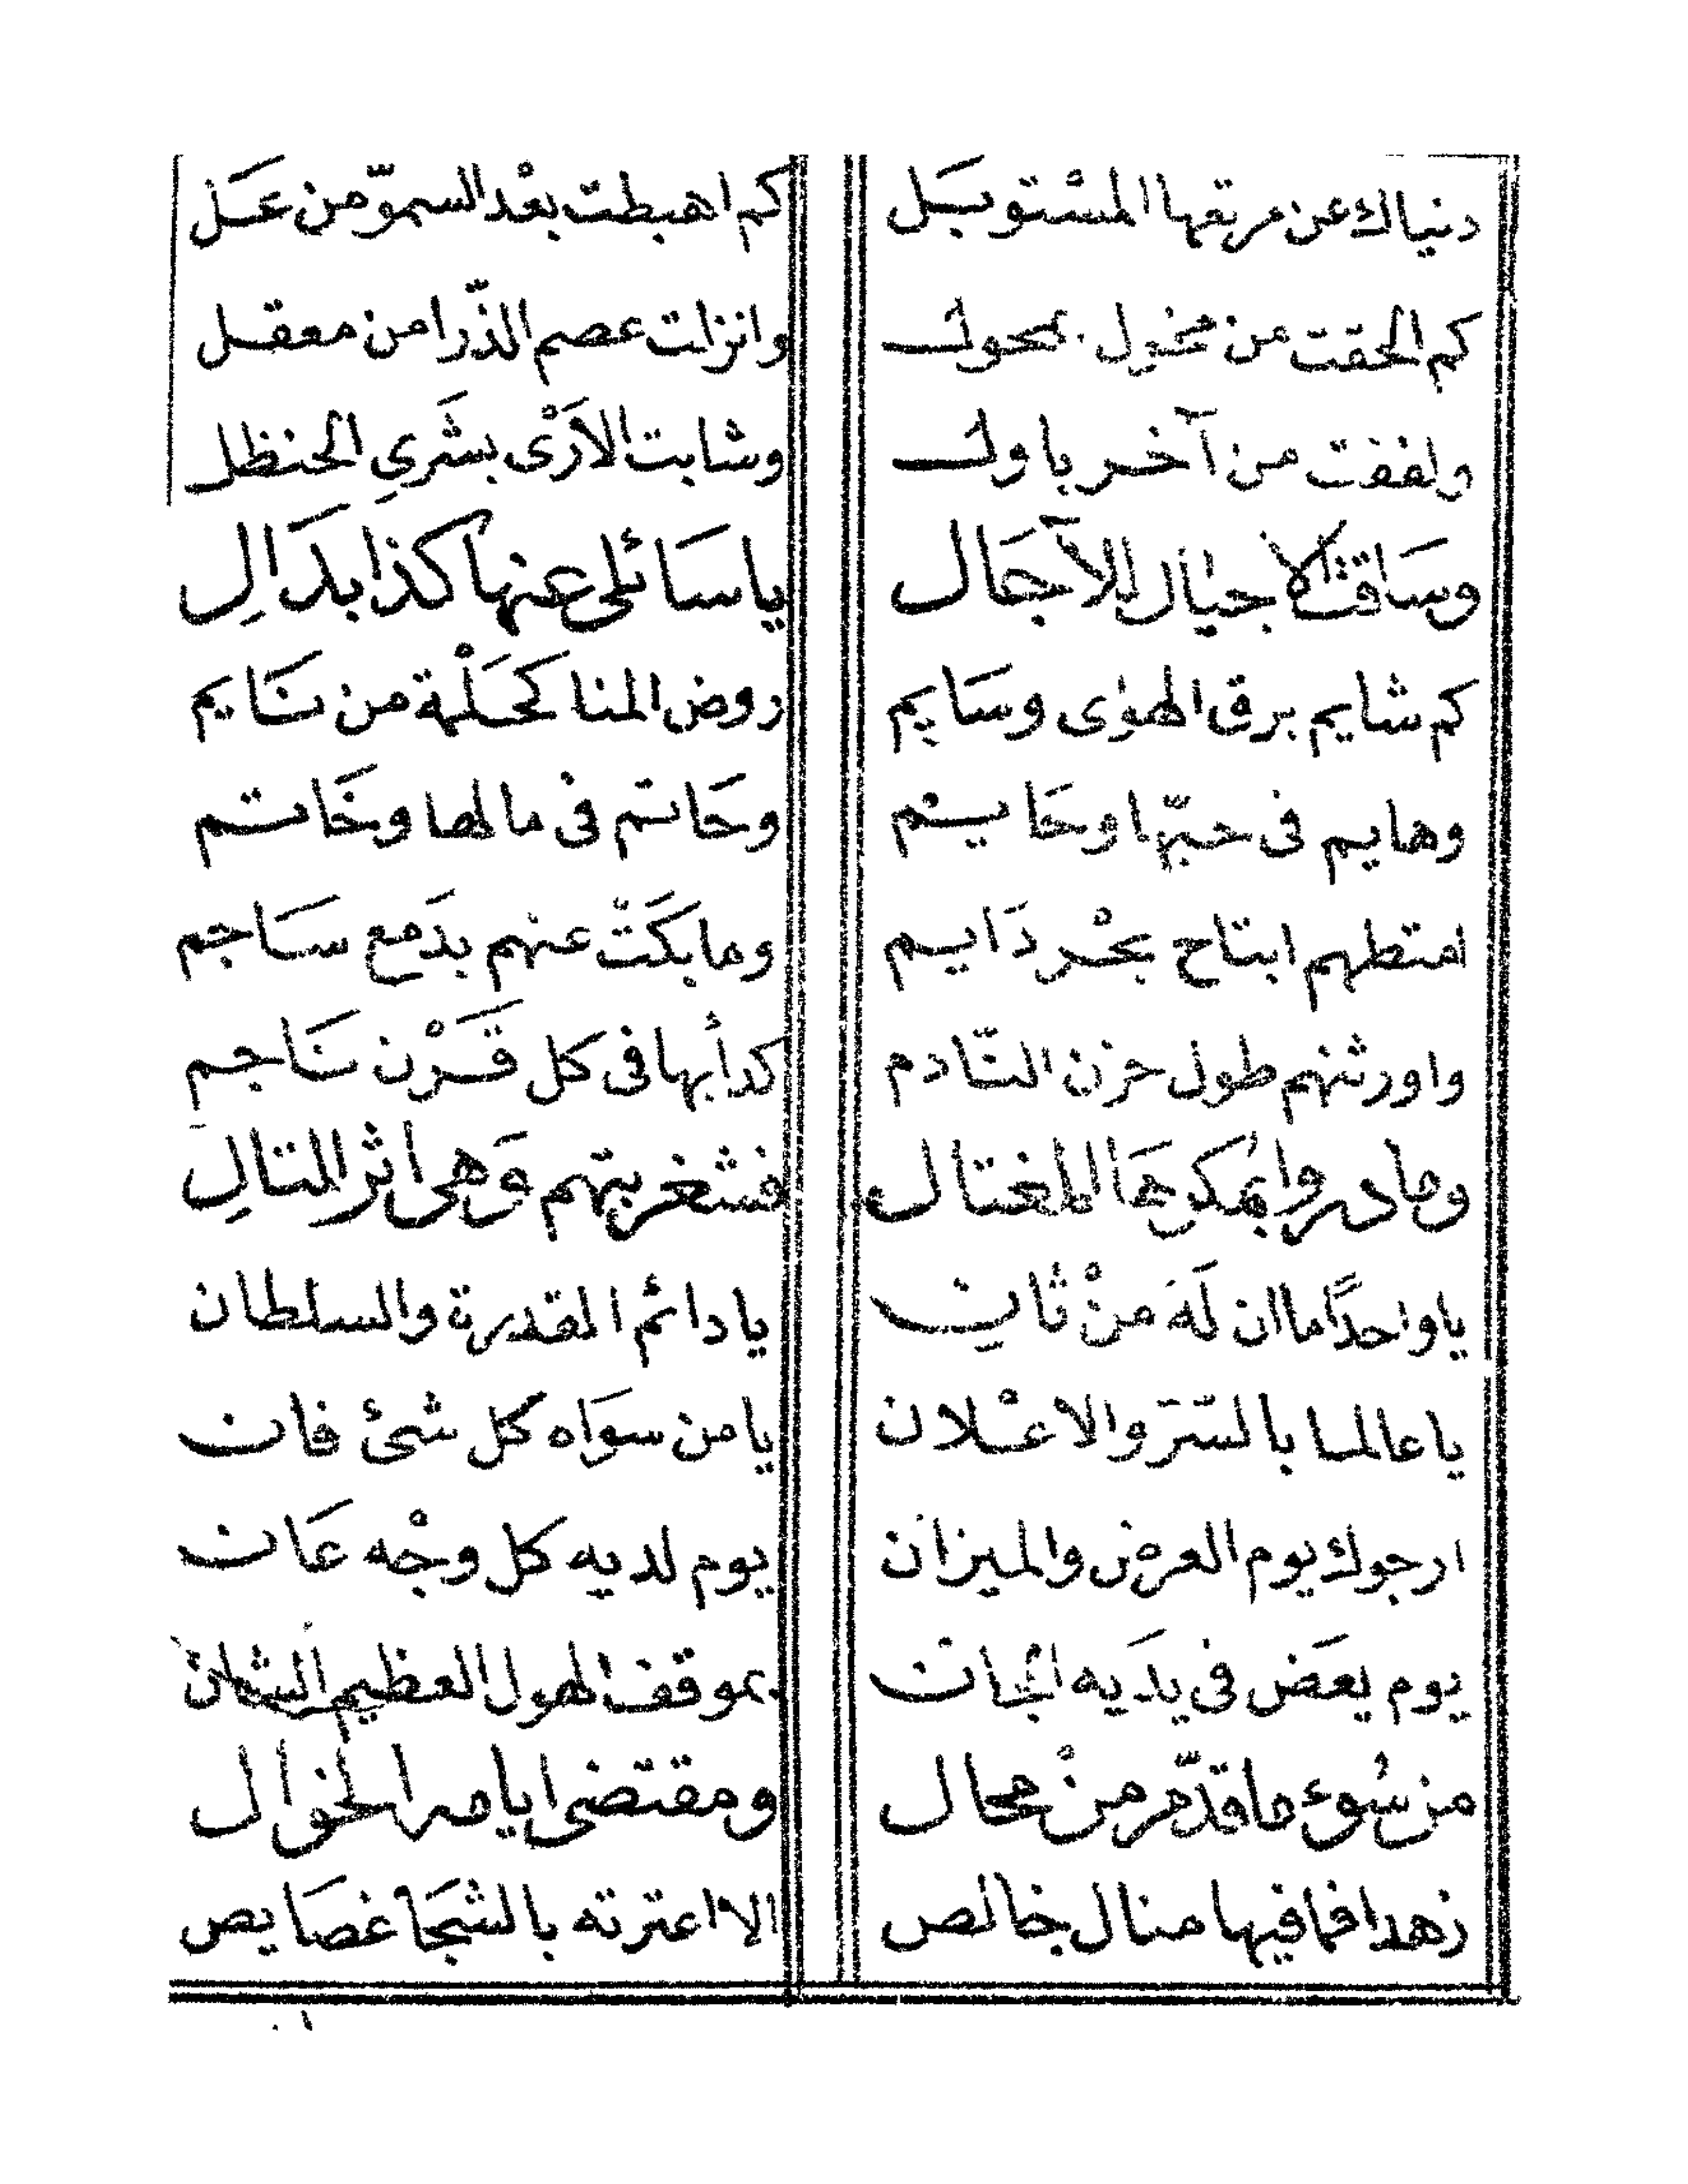 دنياك عن مربعها المسْتوبَل كم اهبطت بعْد السموّ من عَل
كم الحقت من مخول بمحول وانزلت عصم الذّرا من معقل
ولففت من آخر باول وشابت الأرْى بشَري الحنظل
وسَاقت الاجيال للآجَال يا سَائلى عنها كذا بدَالِ
كم شايم برق الهوٰى وسَايم روض المنا كحَلْمة من نَايم
وهايم فى حبّها وحَايم وحَاتم فى مالها وخَاتم
امتطهم ابتاح بحْر دَايم وما بكَتْ عنهم بدَمع سَاجم
واورثنهم طول حزن النّادم كدأبها فى كل قَرْن نَاجمِ
وما دروا بمكرهَا المغتال فشغر بيتهم وَهى اثر المتالِ
يا واحدًا ما ان لَه منْ ثانِ يا دائم المقدرة والسلطان
يا عالما بالسّر والاعْلان يا من سوَاه كل شئ فان
ارجوك يوم العرض والميزان يوم لديه كل وجْه عَان
يوم يعَض فى يدَيه الجان بموقف الهول العظيم الشان
من سُوء ما قدّم منْ محال ومقتضى ايامه الخوال
زهدا فما فيها منال خالص الا اعترته بالشجَا غصَايص